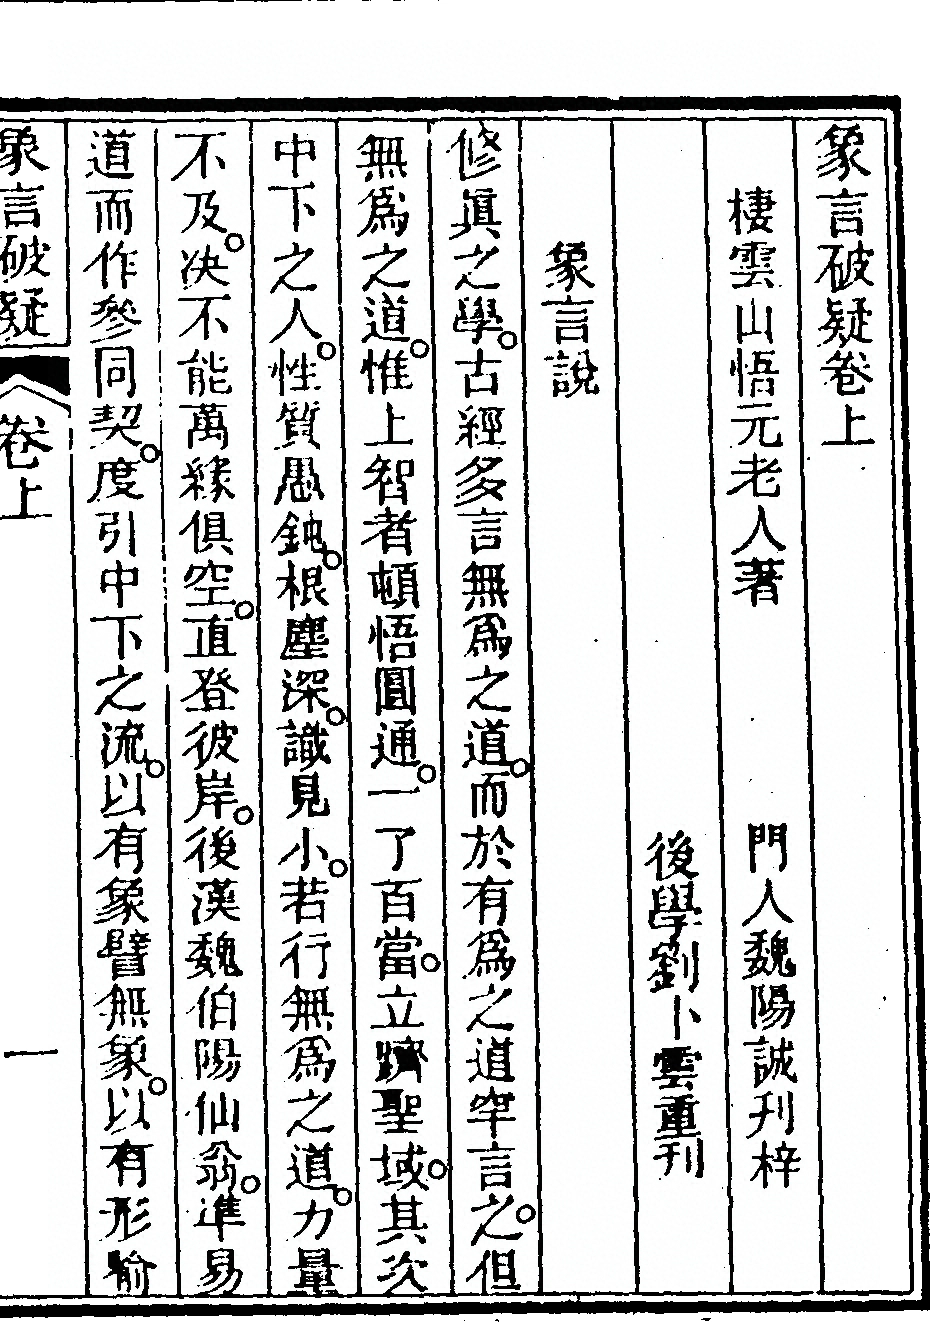 象言破疑卷上
棲雲山悟元老人著 門人魏陽誠刋梓
後學劉卜雲重刊
象言說
修眞之學。古經多言無爲之道。而於有爲之道罕言之。但
無爲之道。惟上智者頓悟圓通。一了百當。立躋聖域。其次
中下之人。性質愚鈍。根塵深。識見小。若行無爲之道。力量
不及。决不能萬緣俱空。直登彼岸。後漢魏伯陽仙翁。準易
道而作參同契。度引中下之流。以有象譬無象。以有形喻
象言破疑 卷上 一